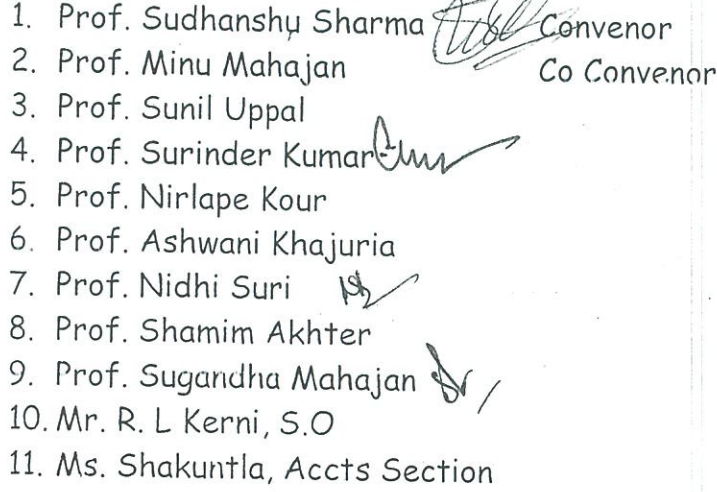 1. Prof. Sudhanshu Sharma Convenor
2. Prof. Minu Mahajan Co Convenor
3. Prof. Sunil Uppal
4. Prof. Surinder Kumar
5. Prof. Nirlape Kour
6. Prof. Ashwani Khajuria
7. Prof. Nidhi Suri
8. Prof. Shamim Akhter
9. Prof. Sugandha Mahajan
10. Mr. R. L Kerni, S.O
11. Ms. Shakuntla, Accts Section